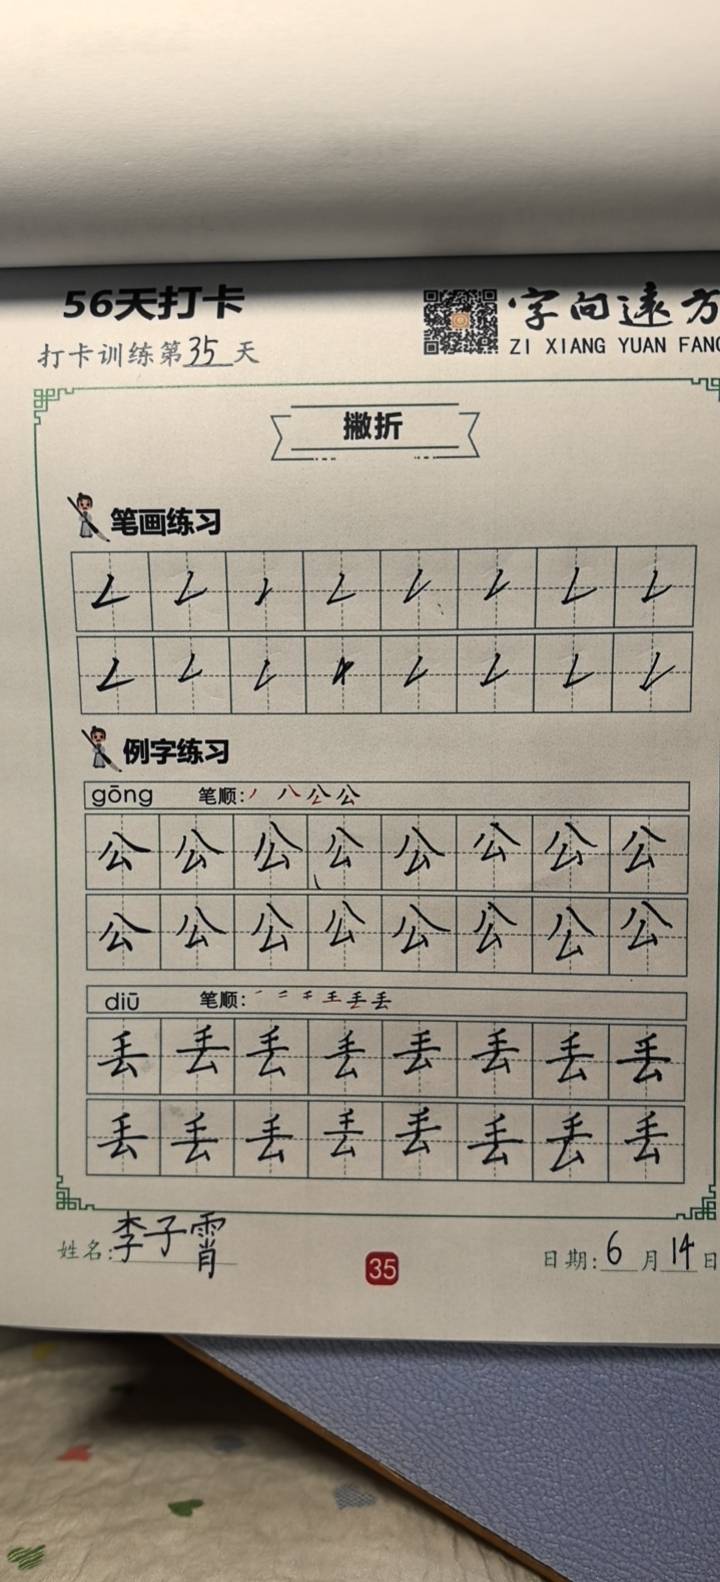 56天打卡
字向远方
打卡训练第35天
ZI XIANG YUAN FANG
撇折
笔画练习
例字练习
gōng 笔顺:
公 公 公 公 公 公 公 公
公 公 公 公 公 公 公 公
diū 笔顺:
丢 丢 丢 丢 丢 丢 丢 丢
丢 丢 丢 丢 丢 丢 丢 丢
姓名:李子霄
35
日期:6月14日